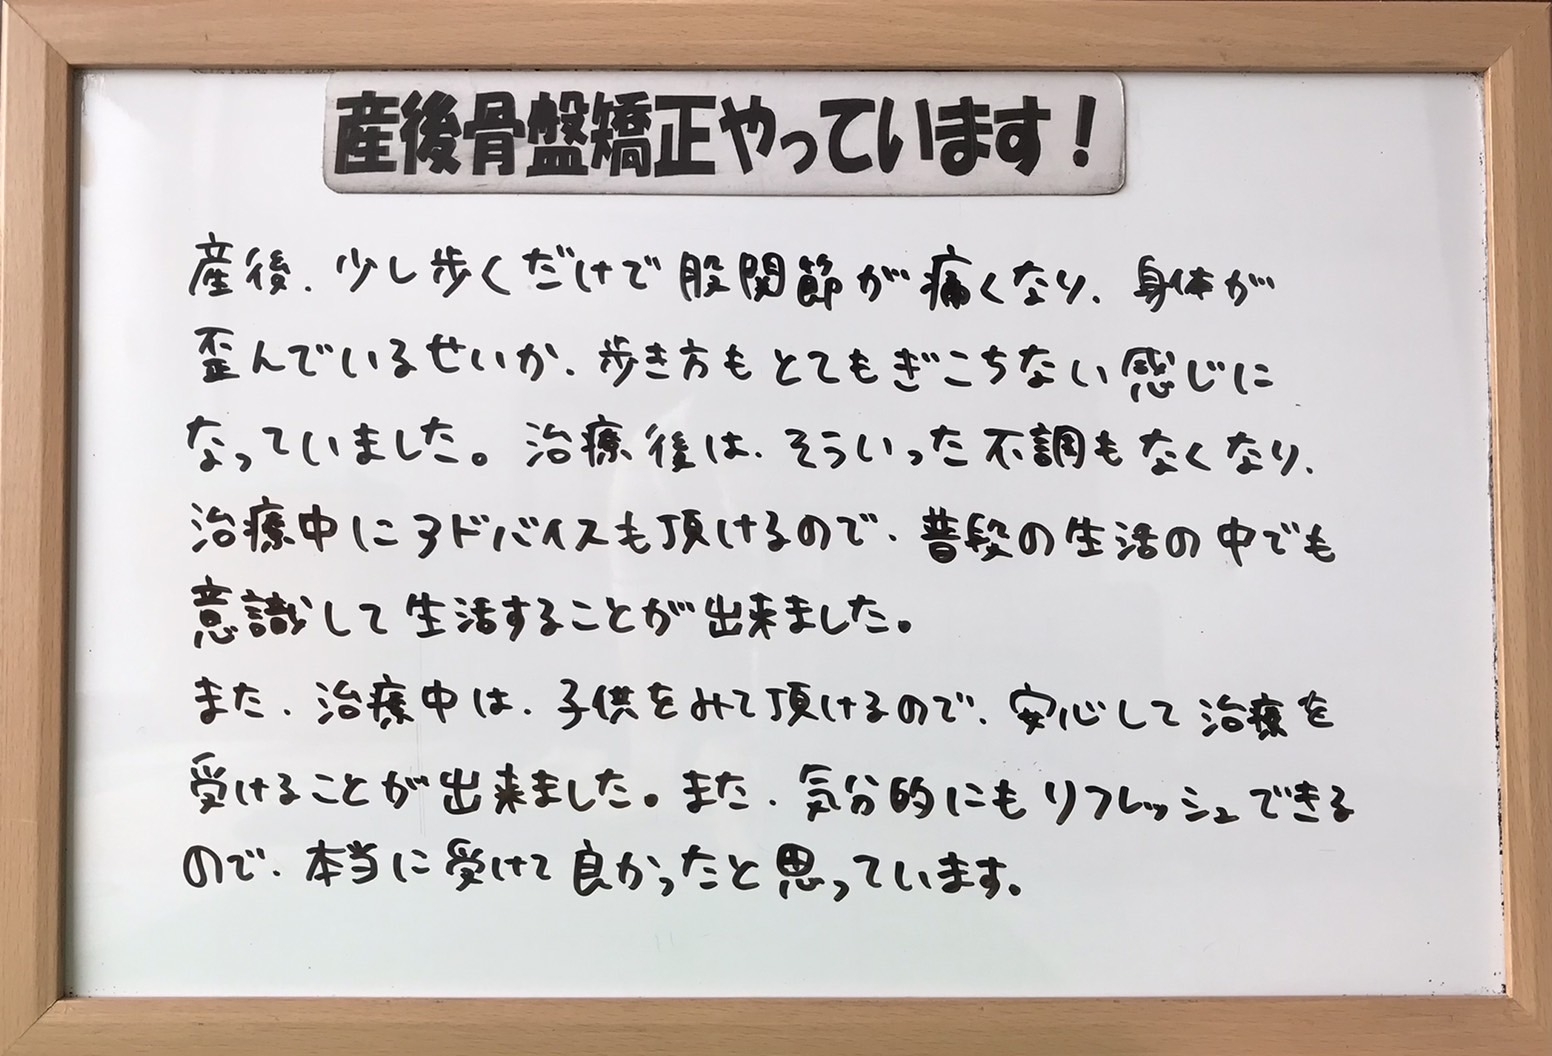 産後骨盤矯正やっています！
産後、少し歩くだけで股関節が痛くなり、身体が
歪んでいるせいか、歩き方もとてもぎこちない感じに
なっていました。治療後は、そういった不調もなくなり、
治療中にアドバイスも頂けるので、普段の生活の中でも
意識して生活することが出来ました。
また、治療中は、子供をみて頂けるので、安心して治療を
受けることが出来ました。また、気分的にもリフレッシュできる
ので、本当に受けて良かったと思っています。